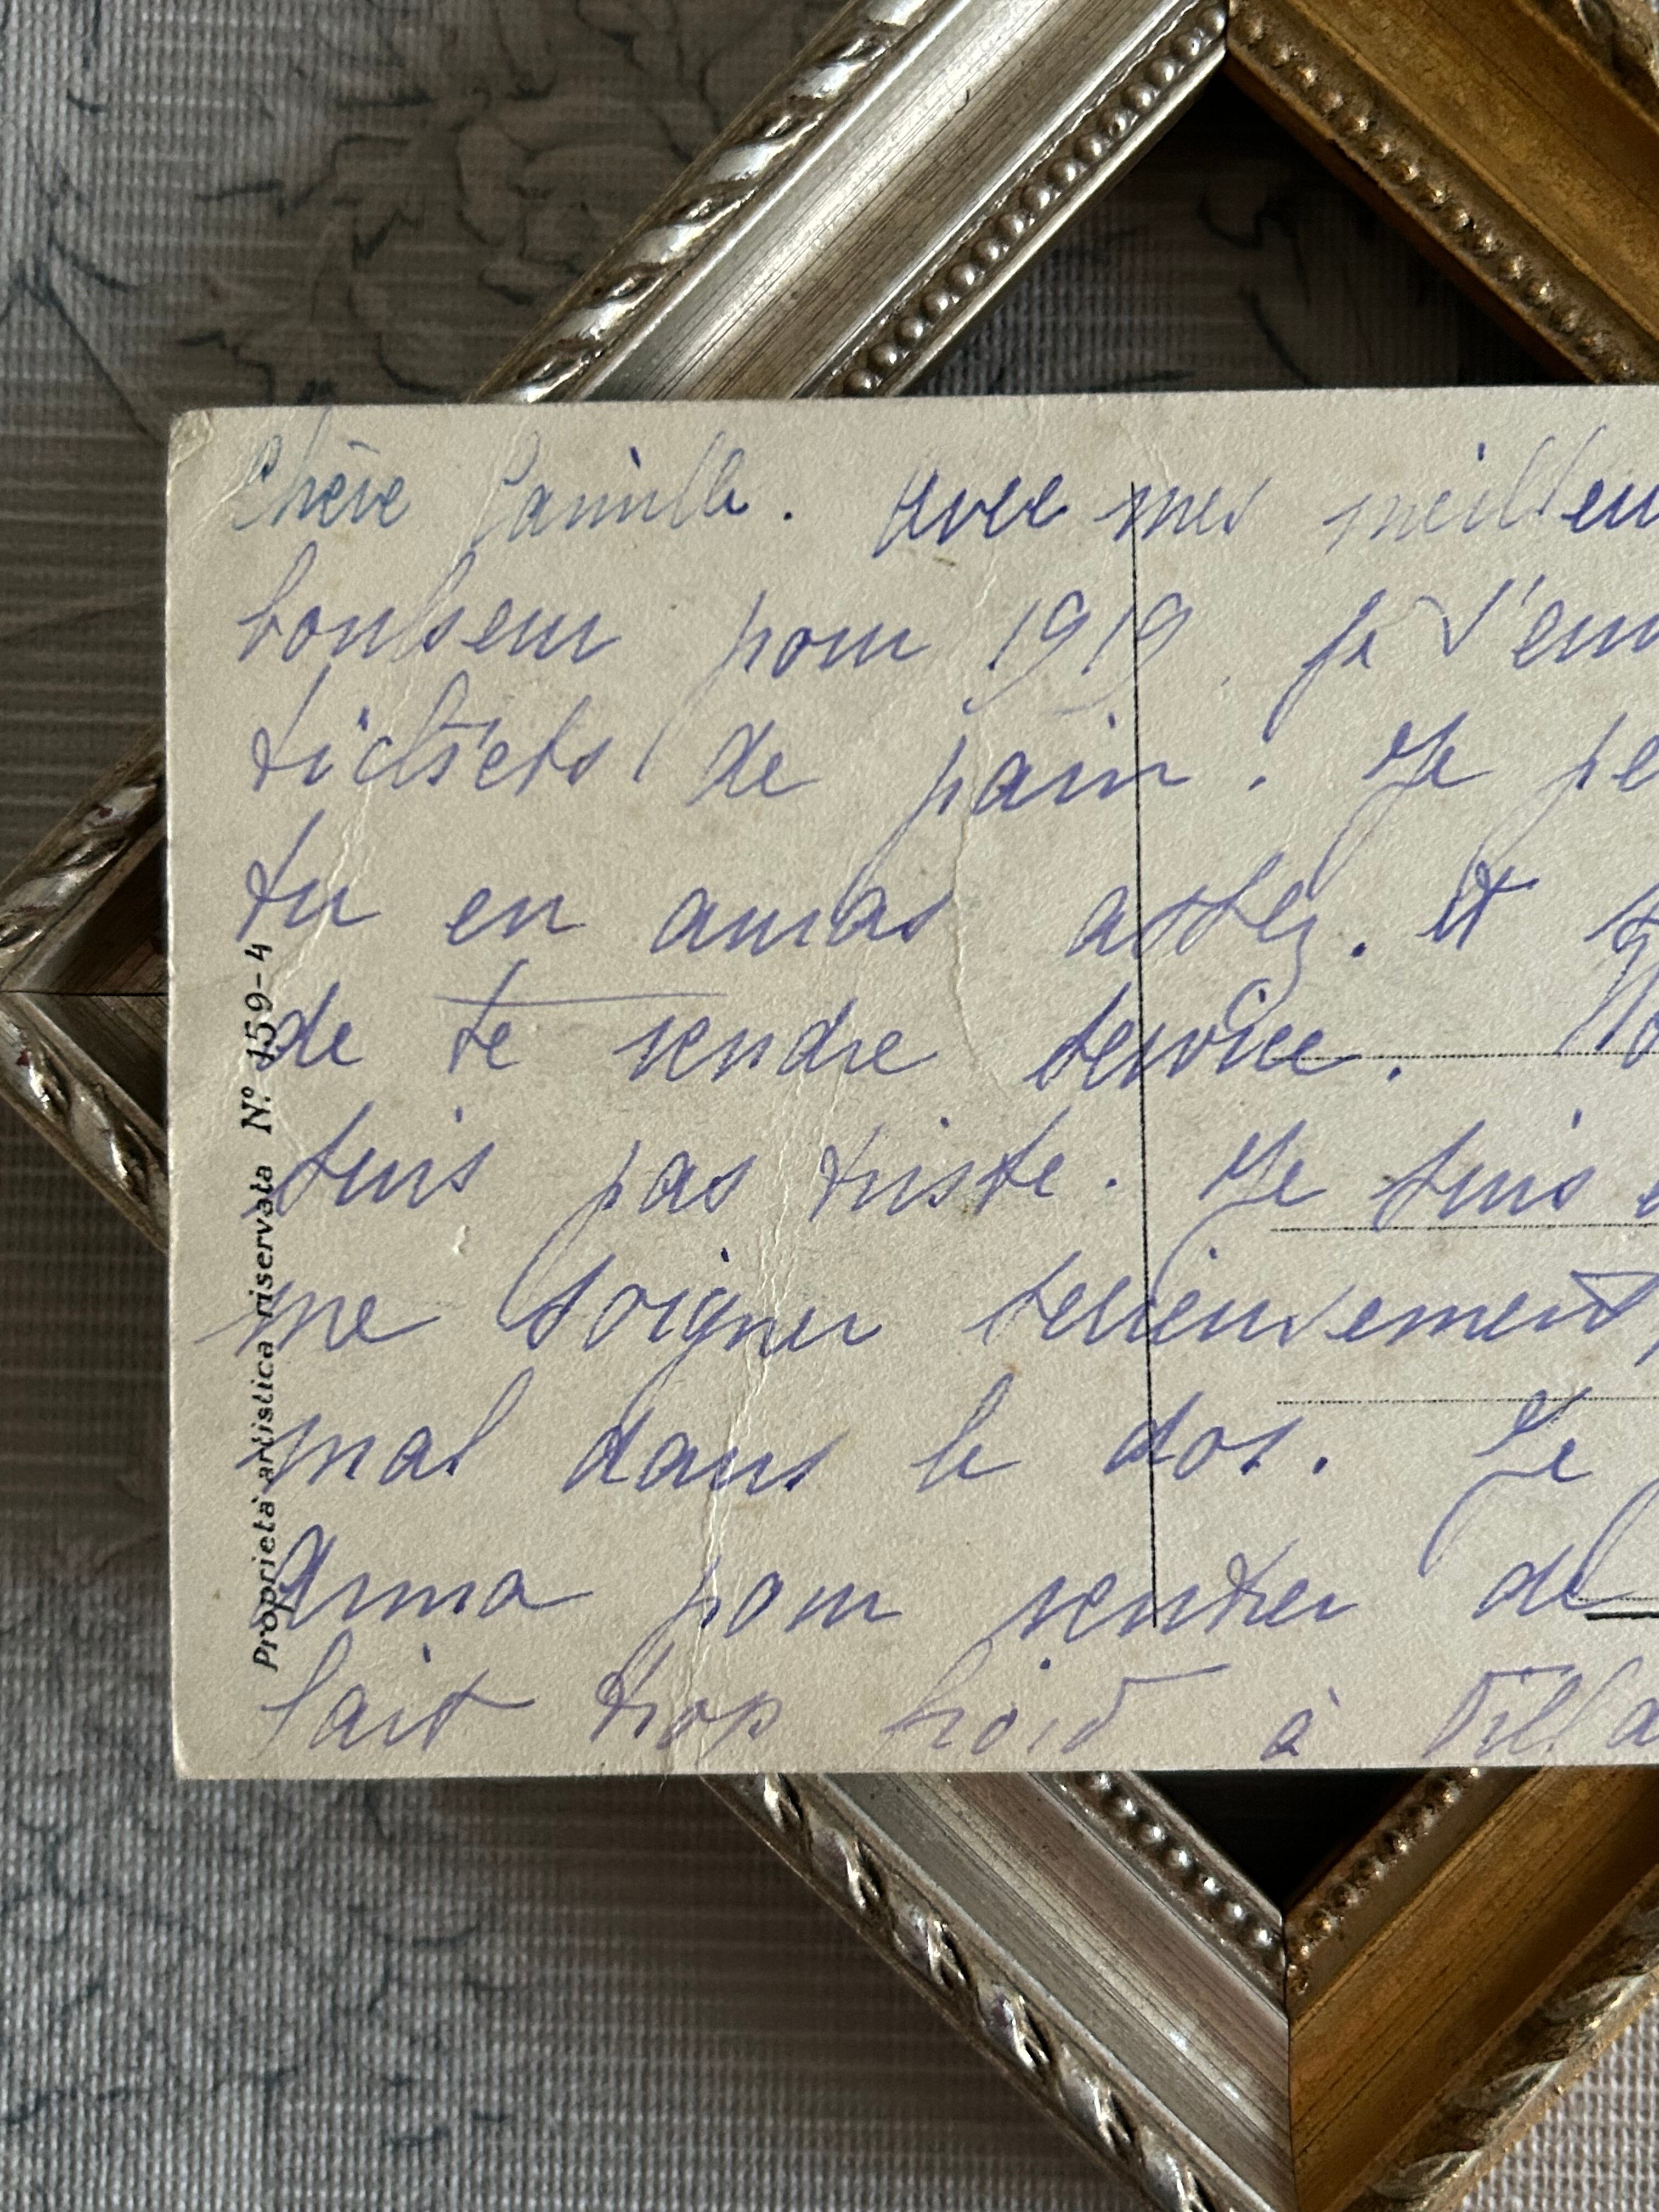 Chère Camille. Avec mes meilleu
bonheur pour 1919. Je t'en
tickets de pain. Je pe
tu en auras assez. Et
de te rendre service.
suis pas triste. Je suis
me soigner serieusement,
mal dans le dos. Je
Anna pour rentrer de
fait trop froid à Villa
Proprietà artistica riservata Nº 159-4